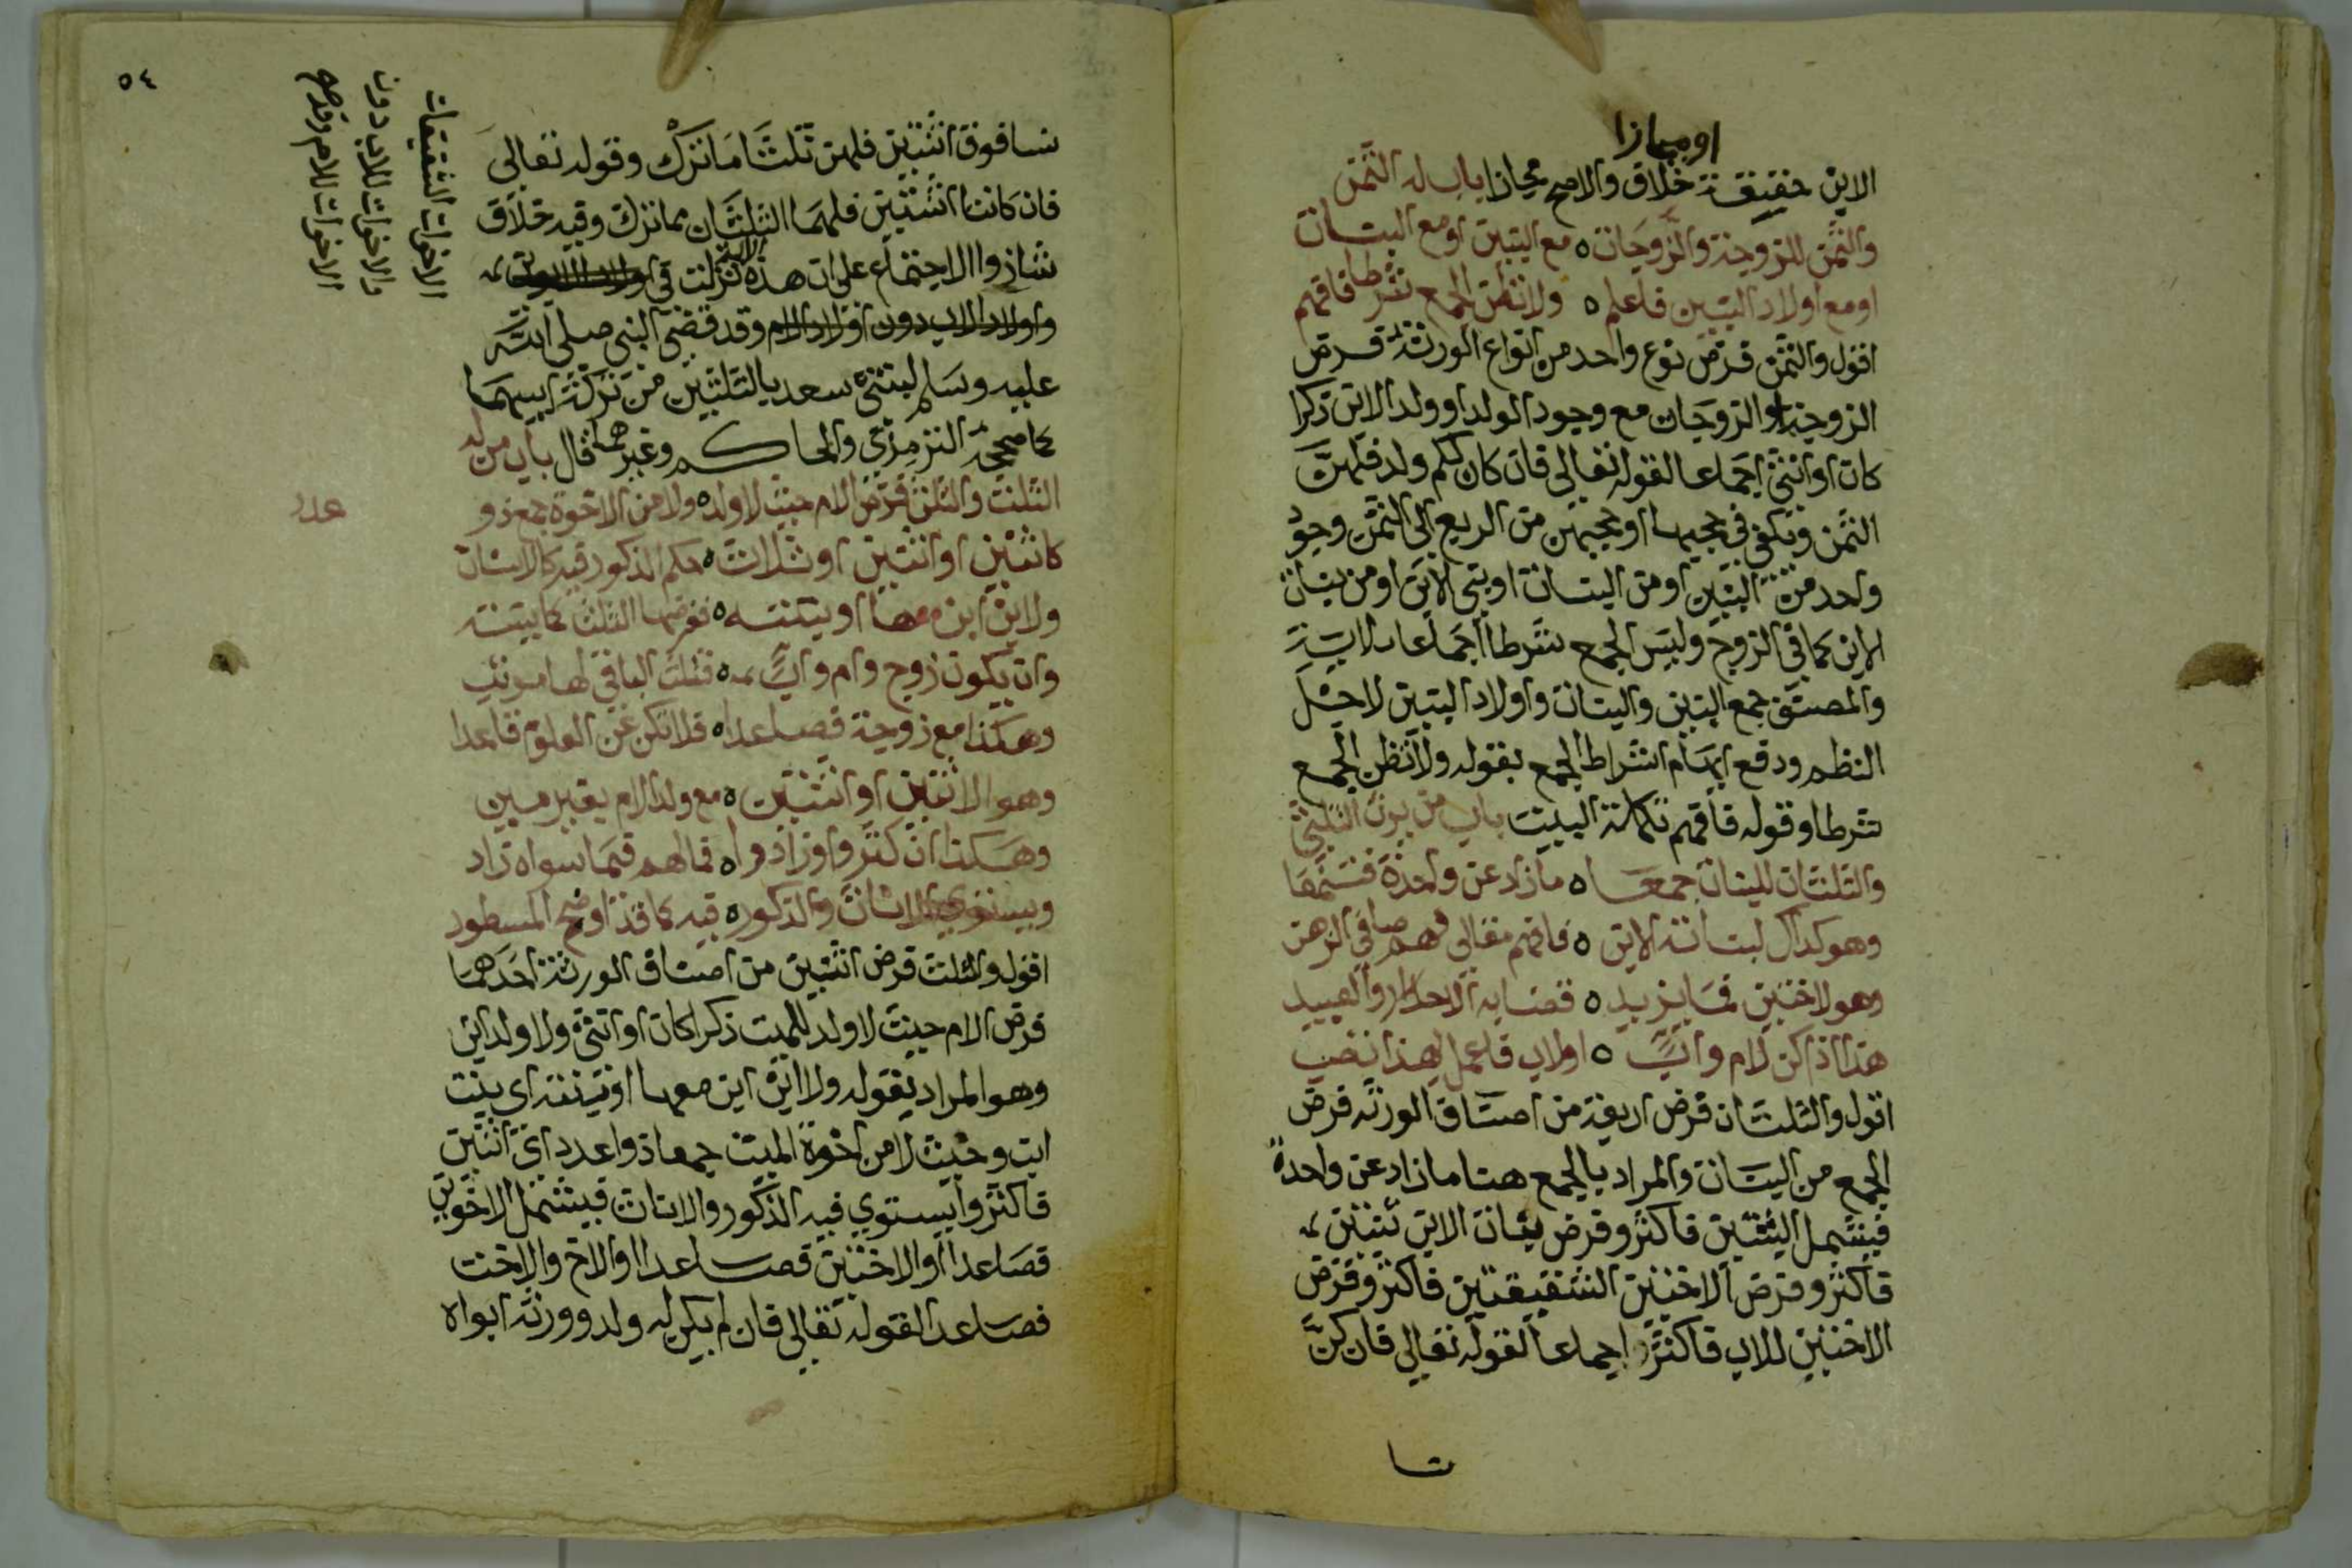 او مجازا
الابن حقيقة خلاف والاصح مجازا باب له الثمن
والثمن للزوجة والزوجات ٥ مع البنين او مع البنات
او مع اولاد البنين فاعلم ٥ ولا تظن الجمع شرطا فافهم
اقول والثمن فرض نوع واحد من انواع الورثة فرض
الزوجة او الزوجات مع وجود الولد او ولد الابن ذكرا
كان او انثى اجماعا لقوله تعالى فان كان لكم ولد فلهن
الثمن ويكفي في حجبها او حجبهن من الربع الى الثمن وجود
واحد من البنين او من البنات او بني الابن او من بنات
الابن كما في الزوج وليس الجمع شرطا اجماعا للاية
والمصنف جمع البنين والبنات واولاد البنين لاجل
النظم ودفع ايهام اشتراط الجمع بقوله ولا تظن الجمع
شرطا وقوله فافهم تكملة البيت باب من يرث الثلثين
والثلثان للبنات جمعا ٥ ما زاد عن واحدة فسمعا
وهو كذاك لبنات الابن ٥ فافهم مقالي فهم صافي الذهن
وهو لاختين فما يزيد ٥ قضا به الاحرار والعبيد
هذا اذا كن لام واب ٥ او لاب فاعمل بهذا تصب
اقول والثلثان فرض اربعة من اصناف الورثه فرض
الجمع من البنات والمراد بالجمع هنا ما زاد عن واحدة
فيشمل البنتين فاكثر وفرض بنات الابن ثنتين
فاكثر وفرض الاختين الشقيقتين فاكثر وفرض
الاختين للاب فاكثر اجماعا لقوله تعالى فان كن
نسا
٥٤
نسا فوق اثنتين فلهن ثلثا ما ترك وقوله تعالى
فان كانتا اثنتين فلهما الثلثان مما ترك وفيه خلاف
شاذ والاجتماع على ان هذه الاية نزلت في
واولاد الاب دون اولاد الام وقد قضى النبي صلى الله
عليه وسلم لبنتي سعد بالثلثين من تركة ابيهما
كما صححه الترمذي والحاكم وغيرهما قال باب من له
الثلث والثلث فرض الام حيث لا ولد ٥ ولا من الاخوة جمع ذو
عدد
كاثنين او اثنتين او ثلاث ٥ حكم الذكور فيه كالاناث
ولا ابن ابن معها او بنته ٥ ففرضها الثلث كما بينته
وان يكون زوج وام واب ٥ فثلث الباقي لها مرتب
وهكذا مع زوجة فصاعدا ٥ فلا تكن عن العلوم قاعدا
وهو الاثنين او اثنتين ٥ مع ولد الام بغير مين
وهكذا ان كثروا او زادوا ٥ فما لهم فيما سواه زاد
ويستوي الاناث والذكور ٥ فيه كما قد اوضح المسطور
اقول والثلث فرض اثنين من اصناف الورثة احدهما
فرض الام حيث لا ولد للميت ذكرا كان او انثى ولا ولد ابن
وهو المراد بقوله ولا ابن ابن معها او بنته اي بنت
ابن وحيث لا من اخوة الميت جمعا ذوا عدد اي اثنين
فاكثر ويستوي فيه الذكور والاناث فيشمل الاخوين
فصاعدا والاختين فصاعدا والاخ والاخت
فصاعدا لقوله تعالى فان لم يكن له ولد وورثه ابواه
الاخوات الشقيقات
والاخوات للاب دون
الاخوات للام وقد صح